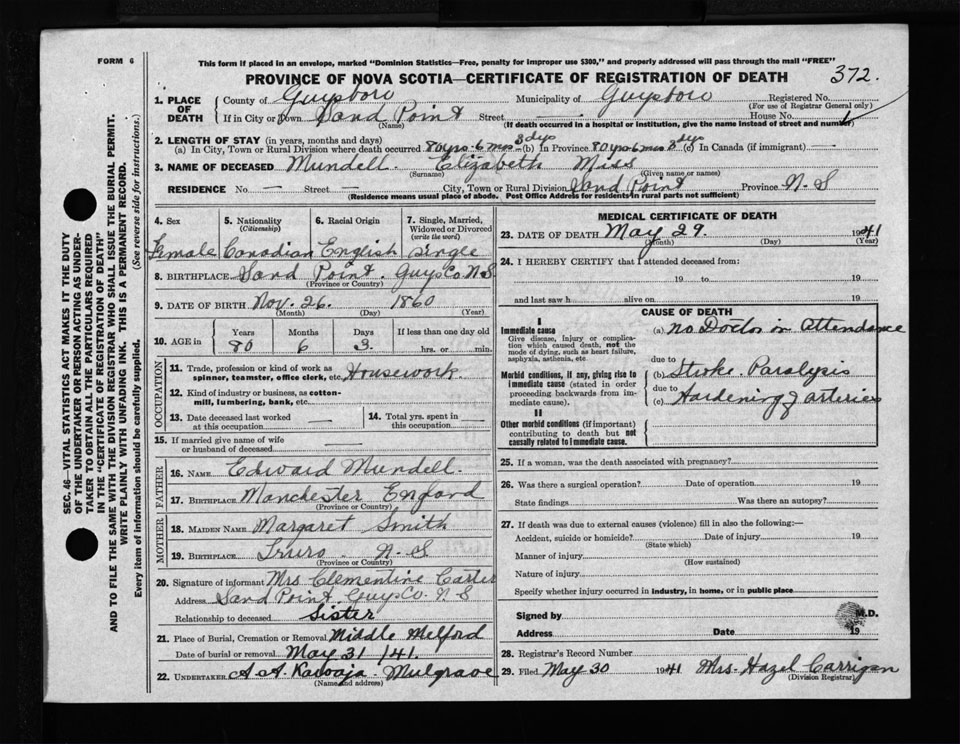 FORM 6
This form if placed in an envelope, marked "Dominion Statistics—Free, penalty for improper use $300," and properly addressed will pass through the mail "FREE"
PROVINCE OF NOVA SCOTIA—CERTIFICATE OF REGISTRATION OF DEATH 372.
1. PLACE OF DEATH County of Guysboro Municipality of Guysboro Registered No.
(For use of Registrar General only)
If in City or Town Sand Point Street — House No.
(Name) (If death occurred in a hospital or institution, give the name instead of street and number)
2. LENGTH OF STAY (in years, months and days)
(a) In City, Town or Rural Division where death occurred 80 yrs - 6 mos 3 dys (b) In Province 80 yrs - 6 mos 3 dys (c) In Canada (if immigrant) —
3. NAME OF DECEASED Mundell Elizabeth Miss
(Surname) (Given name or names)
RESIDENCE No. — Street — City, Town or Rural Division Sand Point Province N. S
(Residence means usual place of abode. Post Office Address for residents in rural parts not sufficient)
4. Sex 5. Nationality (Citizenship) 6. Racial Origin 7. Single, Married, Widowed or Divorced (write the word)
Female Canadian English Single
8. BIRTHPLACE Sand Point. Guys Co. N.S
(Province or Country)
9. DATE OF BIRTH Nov. 26. 1860
(Month) (Day) (Year)
10. AGE in Years Months Days If less than one day old
80 6 3 hrs. or min.
OCCUPATION
11. Trade, profession or kind of work as spinner, teamster, office clerk, etc. Housework
12. Kind of industry or business, as cotton-mill, lumbering, bank, etc.
13. Date deceased last worked at this occupation — 14. Total yrs. spent in this occupation —
15. If married give name of wife or husband of deceased
FATHER
16. NAME Edward Mundell.
17. BIRTHPLACE Manchester England
(Province or Country)
MOTHER
18. MAIDEN NAME Margaret Smith
19. BIRTHPLACE Truro - N-S
(Province or Country)
20. Signature of informant Mrs Clementine Carter
Address Sand Point. Guys Co. N S
Relationship to deceased Sister
21. Place of Burial, Cremation or Removal Middle Melford
Date of burial or removal May 31 /41.
22. UNDERTAKER A. A. Kavoaja - Mulgrave
(Name and address)
MEDICAL CERTIFICATE OF DEATH
23. DATE OF DEATH May 29. 1941
(Month) (Day) (Year)
24. I HEREBY CERTIFY that I attended deceased from:
19 to 19
and last saw h alive on 19
CAUSE OF DEATH
I
Immediate cause (a) no Doctor in attendance
Give disease, injury or complication which caused death, not the mode of dying, such as heart failure, asphyxia, asthenia, etc.
due to
Morbid conditions, if any, giving rise to immediate cause (stated in order proceeding backwards from immediate cause). (b) Stroke Paralysis
due to
(c) Hardening of arteries
II
Other morbid conditions (if important) contributing to death but not causally related to immediate cause.
25. If a woman, was the death associated with pregnancy?
26. Was there a surgical operation? Date of operation 19
State findings Was there an autopsy?
27. If death was due to external causes (violence) fill in also the following:—
Accident, suicide or homicide? Date of injury 19
(State which)
Manner of injury
(How sustained)
Nature of injury
Specify whether injury occurred in industry, in home, or in public place
Signed by M.D.
Address Date 19
28. Registrar's Record Number
29. Filed May 30 1941 Mrs. Hazel Carrigan
(Division Registrar)
SEC. 46—VITAL STATISTICS ACT MAKES IT THE DUTY
OF THE UNDERTAKER OR PERSON ACTING AS UNDER-
TAKER TO OBTAIN ALL THE PARTICULARS REQUIRED
IN THE "CERTIFICATE OF REGISTRATION OF DEATH"
AND TO FILE THE SAME WITH THE DIVISION REGISTRAR WHO SHALL ISSUE THE BURIAL PERMIT.
WRITE PLAINLY WITH UNFADING INK. THIS IS A PERMANENT RECORD.
Every item of information should be carefully supplied. (See reverse side for instructions.)